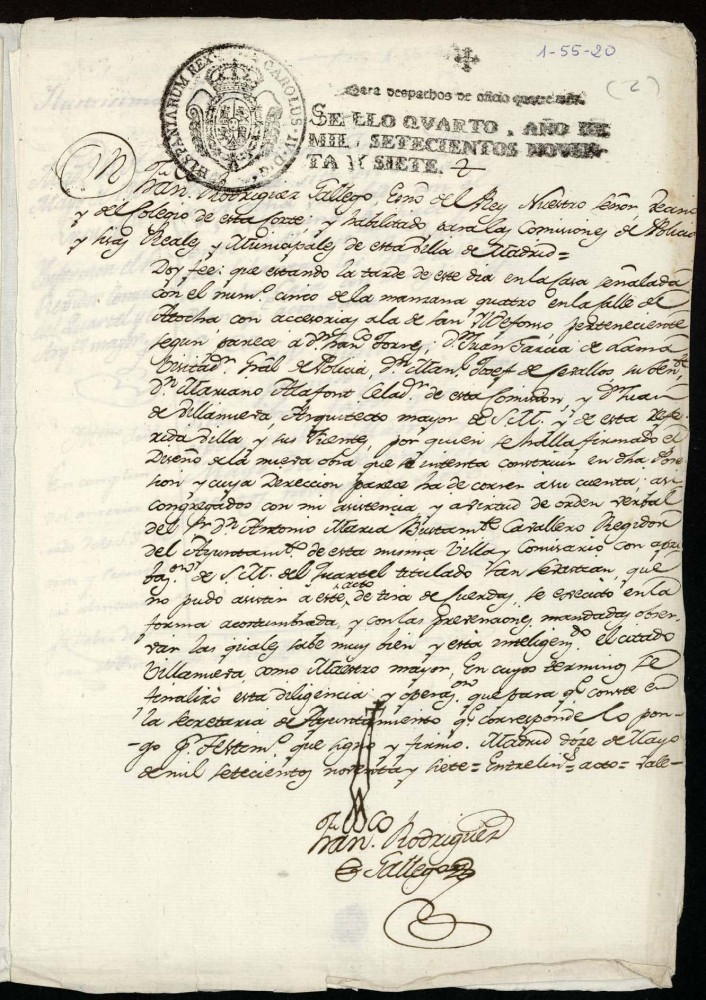 1-55-20
(2)
HISPANIARUM REX CAROLUS IV D. G.
Para despachos de oficio quatro mrs.
SELLO QVARTO, AÑO DE
MIL SETECIENTOS NOVEN-
TA Y SIETE.
Fran.co Rodriguez Gallego, Esno del Rey Nuestro señor,
y del Colegio de esta Corte, y habilitado para las Comisiones de Policia
y Reales y Municipales de esta Villa de Madrid=
Doy fee: que estando la tarde de este dia en la Casa señalada
con el num.o cinco de la manzana quatro en la Calle de
Atocha con accesorias a la de San Yldefonso perteneciente
segun parece a Dn Fran.co Torre, Dn Juan Garcia de Lama
Visitador Gral de Policia, Dn Man.l Josef de Cevallos su then.te
Dn Mariano Alafont Celad.r de esta Comision, y Dn Juan
de Villanueva, Arquitecto mayor de S.M. y de esta refe-
rida Villa, y sus Fuentes, por quien se halla firmado el
Diseño de la nueva obra que se intenta construir en dha
y cuya Direccion parece ha de correr a su cuenta: asi
congregados con mi asistencia, y a virtud de orden verbal
del Sr. Dn Antonio Maria Bustam.te Cavallero Regidor
del Ayuntam.to de esta misma Villa y Comisario con
de S.M. del Quartel titulado San Sebastian, que
no pudo asistir a este acto de tira de Cuerdas, se executó en la
forma acostumbrada, y con las prevenciones mandadas obser-
var las quales sabe muy bien y está inteligen.do el citado
Villanueva, como Maestro mayor, En cuyos terminos se
finalizó esta diligencia y operaz.on que para q.e conste en
la Secretaria de Ayuntamiento q.e corresponde lo pon-
go p.r Testim.o que signo y firmo. Madrid doze de Mayo
de mil setecientos noventa y siete= Entrelin.s= acto= Vale-
Fran.co Rodriguez
Gallego